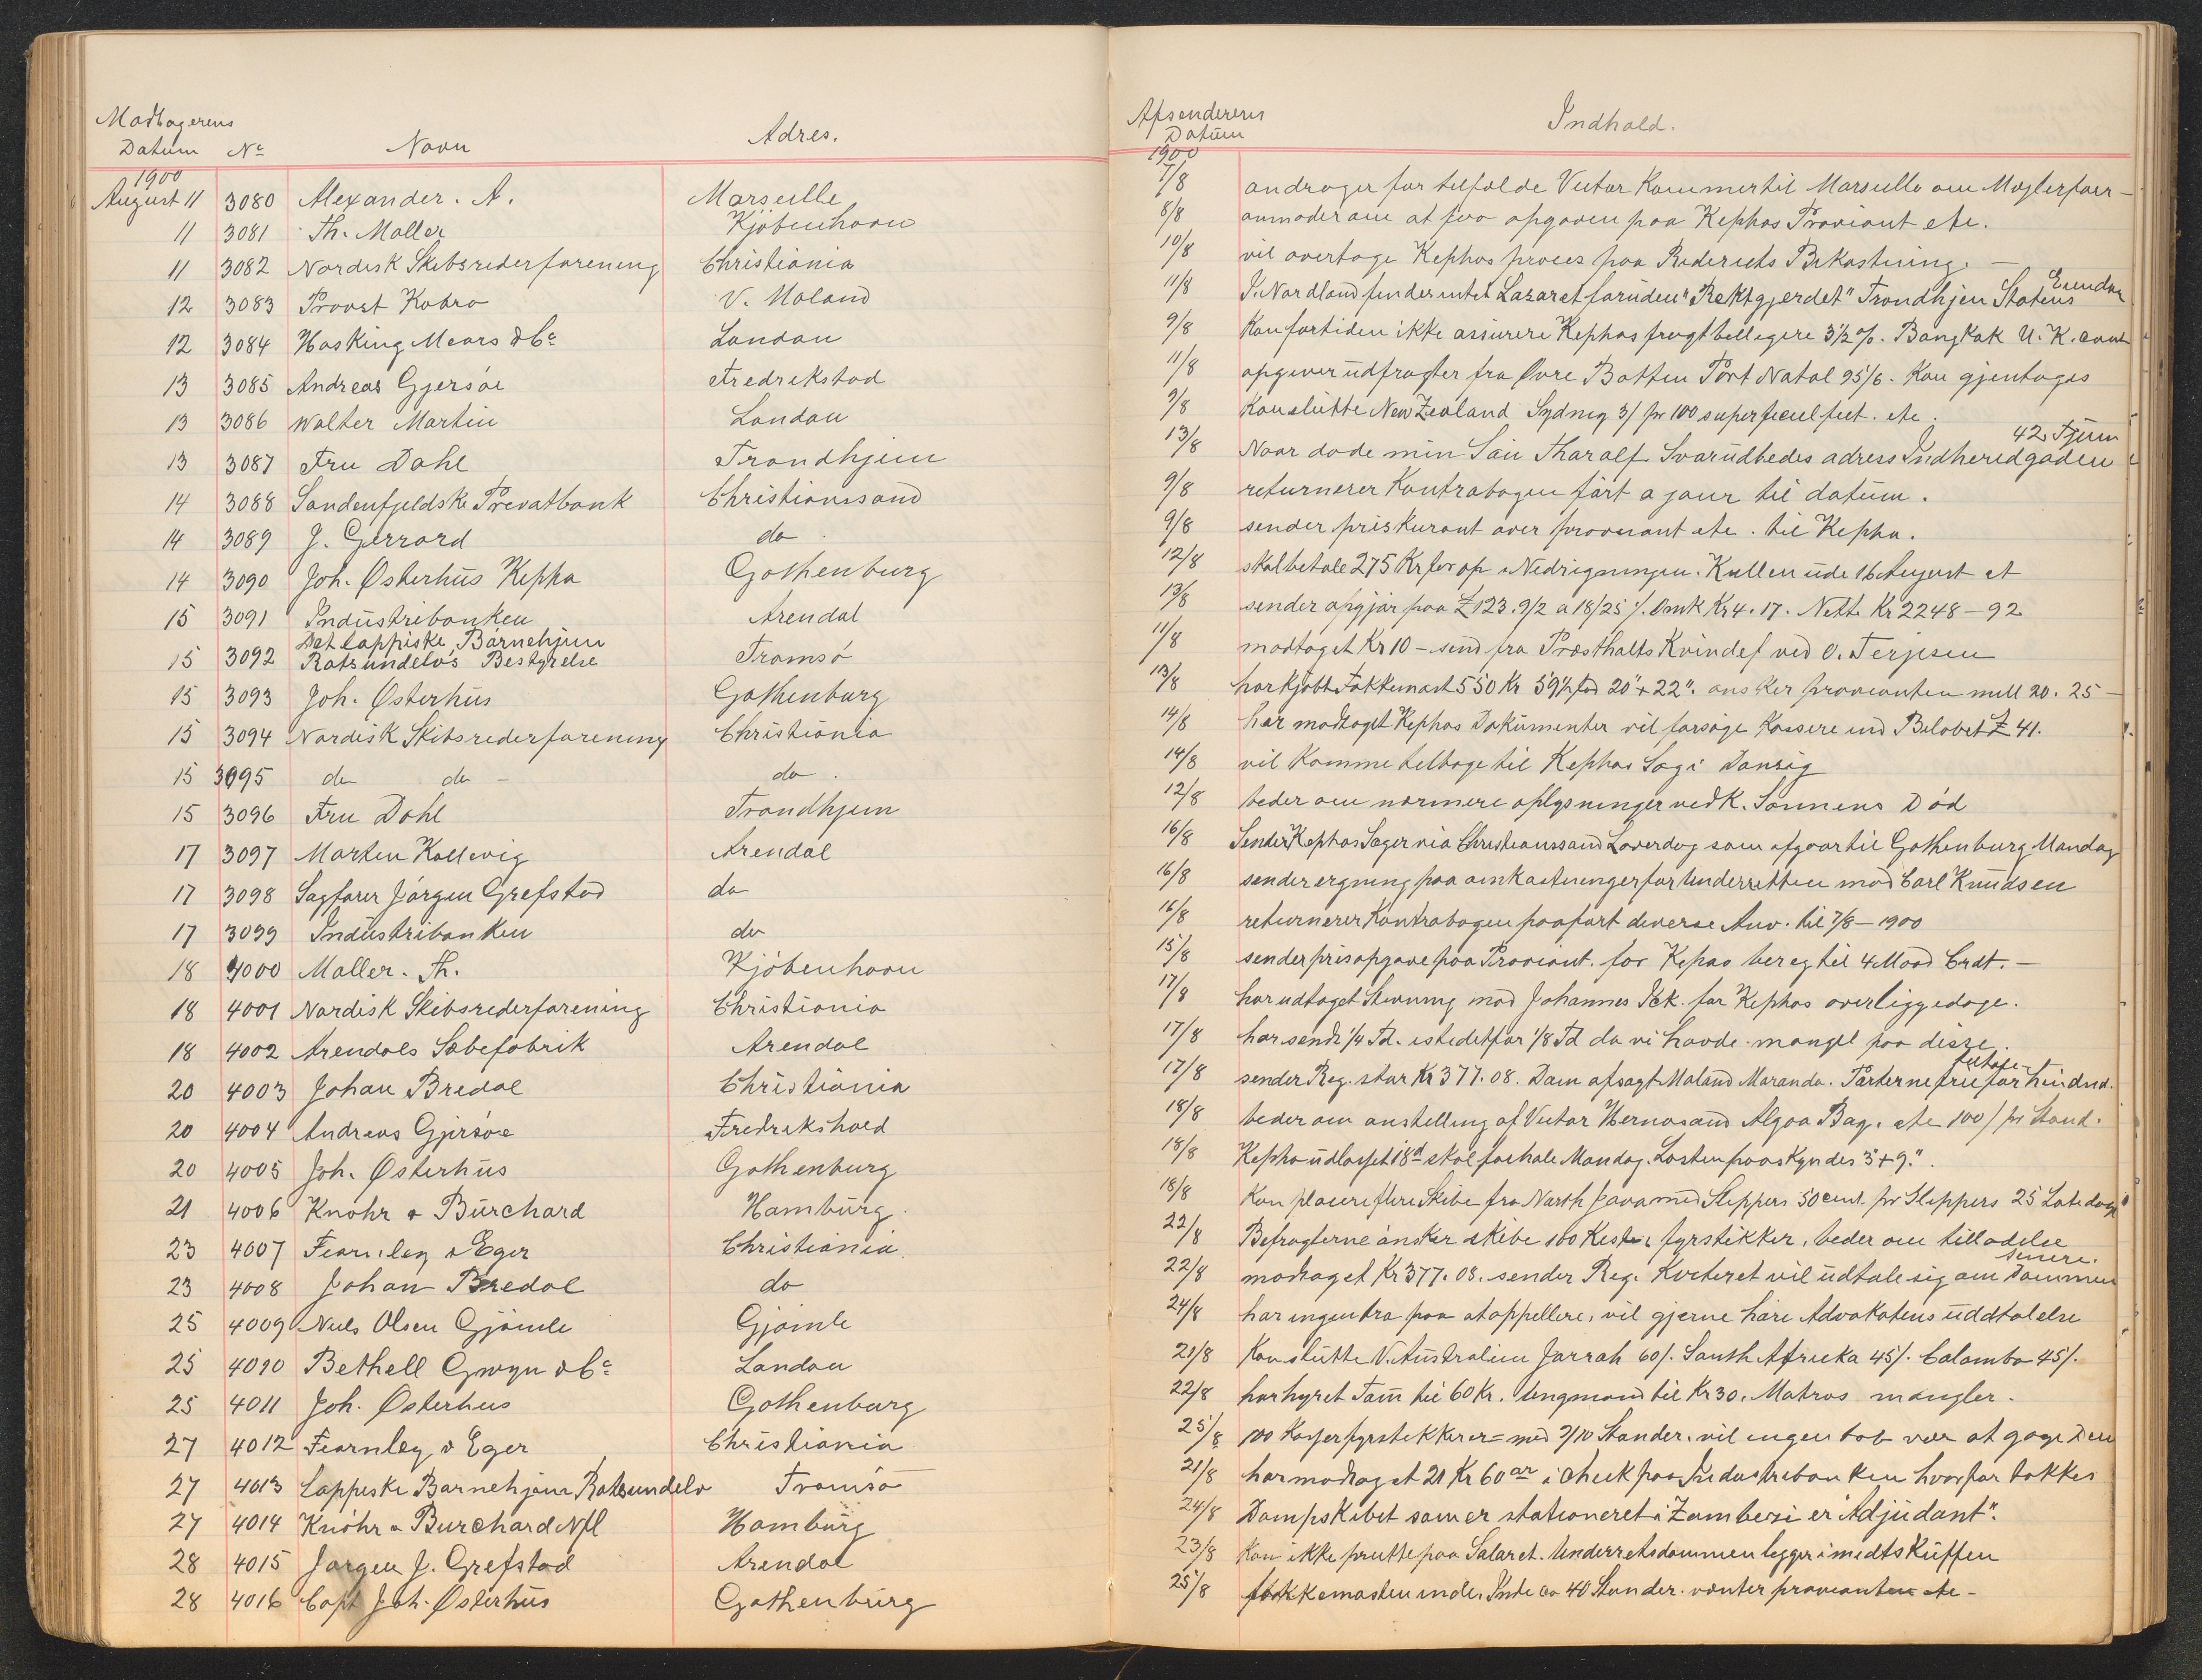 Modtagerens
Datum No Navn Adres.
1900
August 11 3080 Alexander. A. Marseille
11 3081 Th. Møller Kjöbenhavn
11 3082 Nordisk Skibsrederforening Christiania
12 3083 Provst Kobro V. Moland
12 3084 Hosking Mears & Co London
13 3085 Andreas Gjersöe Fredrikstad
13 3086 Walter Martin London
13 3087 Fru Dahl Trondhjem
14 3088 Søndenfjeldske Privatbank Christianssand
14 3089 J. Gerrard do
14 3090 Joh. Østerhüs Kepha Gothenburg
15 3091 Industribanken Arendal
15 3092 Det lappiske Børnehjem Ratsundelvs Bestyrelse Tromsö
15 3093 Joh. Østerhüs Gothenburg
15 3094 Nordisk Skibsrederforening Christiania
15 3095 do do - do.
15 3096 Fru Dahl Trondhjem
17 3097 Morten Kallevig Arendal
17 3098 Sagfører Jörgen Grefstad do
17 3099 Industribanken do
18 4000 Møller. Th. Kjöbenhavn
18 4001 Nordisk Skibsrederforening Christiania
18 4002 Arendals Sæbefabrik Arendal
20 4003 Johan Bredal Christiania
20 4004 Andreas Gjersöe Fredrikshald
20 4005 Joh. Østerhüs Gothenburg
21 4006 Knöhr & Bürchard Hamburg.
23 4007 Fearnley & Eger Christiania.
23 4008 Johan Bredal do
25 4009 Niels Olsen Gjömle Gjömle
25 4010 Bethell Gwyn & Co London
25 4011 Joh. Østerhus Gothenburg
27 4012 Fearnley & Eger Christiania
27 4013 Lappiske Barnehjem Ratsundelv Tromsö
27 4014 Knöhr & Burchard Nfl Hamburg
28 4015 Jørgen J. Grefstad Arendal
28 4016 Capt Joh. Østerhüs Gothenbürg
Afsenderens
Datum Indhold.
1900
7/8 andrager for tilfælde Victor Kommer til Marseille om Mæglerforr-
8/8 anmoder om at faa opgaven paa Kephas Proviant etc.
10/8 vil overtage Kephas proces paa Rederiets Bekostning. -
11/8 I Nordland findes intet Lazaret foruden "Rektgjerdet" Trondhjem Statens Eiendom
9/8 Kan fortiden ikke assurere Kephas fragt billigere 3 1/2 %. Bangkok U. K. cont
11/8 opgiver udfragter fra Øvre Botten Port Natal 95/6. Kan gjentages
9/8 Kan slutte New Zealand Sydney 3/ pr 100 superficiel feet. etc.
13/8 Naar døde min Sön Tharalf. Svar udbedes adress Indheredgaden 42 Tjem
9/8 returnerer Kontrabogen fört a jour til datum.
9/8 sender priskurant over proviant etc. til Kepha.
12/8 skal betale 275 Kr for op & Nedrigningen. Kullen ude 16 August et
13/8 sender opgjör paa £123.9/2 a 18/25 /. Omk Kr 4.17. Netto Kr 2248-92
11/8 modtaget Kr 10 - send fra Præsthalts Kvindef ved O. Terjesen
13/8 har kjöbt Fokkemast 550 Kr 59 1/2 fod 20"+22". ønsker provianten mell 20. 25 -
14/8 har modtaget Kephas Dokumenter vil forsöge Kassere ind Belöbet £ 41.
14/8 vil komme tilbage til Kephas Sag i Danzig
12/8 beder om nærmere oplysninger vedk. Sönnens Död
16/8 Sender Kephas Sager via Christianssand Löverdag som afgaar til Gothenburg Mandag
16/8 sender regning paa omkostninger for Underretten mod Carl Knudsen
16/8 returnerer Kontrabogen paafört diverse Anv. til 7/8-1900
15/8 sender prisopgave paa Proviant. for Kephas bereg til 4 Maad Crdt. -
17/8 har udtaget Stevning mod Johannes Ick. for Kephas overliggedage.
17/8 har sendt 1/4 Td. istedetfor 1/8 Td da vi havde mangel paa disse.
17/8 sender Reg. stor Kr 377.08. Dom afsagt Moland Maranda. Parterne frie for hindnd.
18/8 beder om anstelling af Victor Hernøsand Algoa Bay. etc 100/ pr Stand.
18/8 Kepha udlosset 18d skal forhale Mandag. Lasten paaskyndes 3"+9".
18/8 Kan placere flere Skibe fra North Java med Sleppers 50 cent. pr Sleppers 25 Lastedage
22/8 Befragterne önsker skibe 100 Kister fyrstikker, beder om tilladelse
22/8 modtaget Kr 377.08. sender Reg. Kvitteret vil udtale sig om Dommen senere.
24/8 har ingen tro paa at appellere, vil gjerne höre Advokatens uddtalelse
21/8 Kan slutte V. Australien Jarrah 60/. South Afrika 45/. Colombo 45/.
22/8 har hyret Töm til 60 Kr. Ungmand til Kr 30. Matros mangler.
25/8 100 Kasser fyrstikker er = med 2/10 Stander. vil ingen tab vær at gage Den
21/8 har modtaget 21 Kr 60 ør i check paa Industribanken hvorfor takkes
24/8 Dampskibet som er stationeret i Zambesi er "Adjudant".
23/8 Kan ikke prutte paa Salæret. Underretsdommen ligger imidts Kuffen
25/8 fokkemasten inde. Inde ca 40 Stander. venter provianten etc -